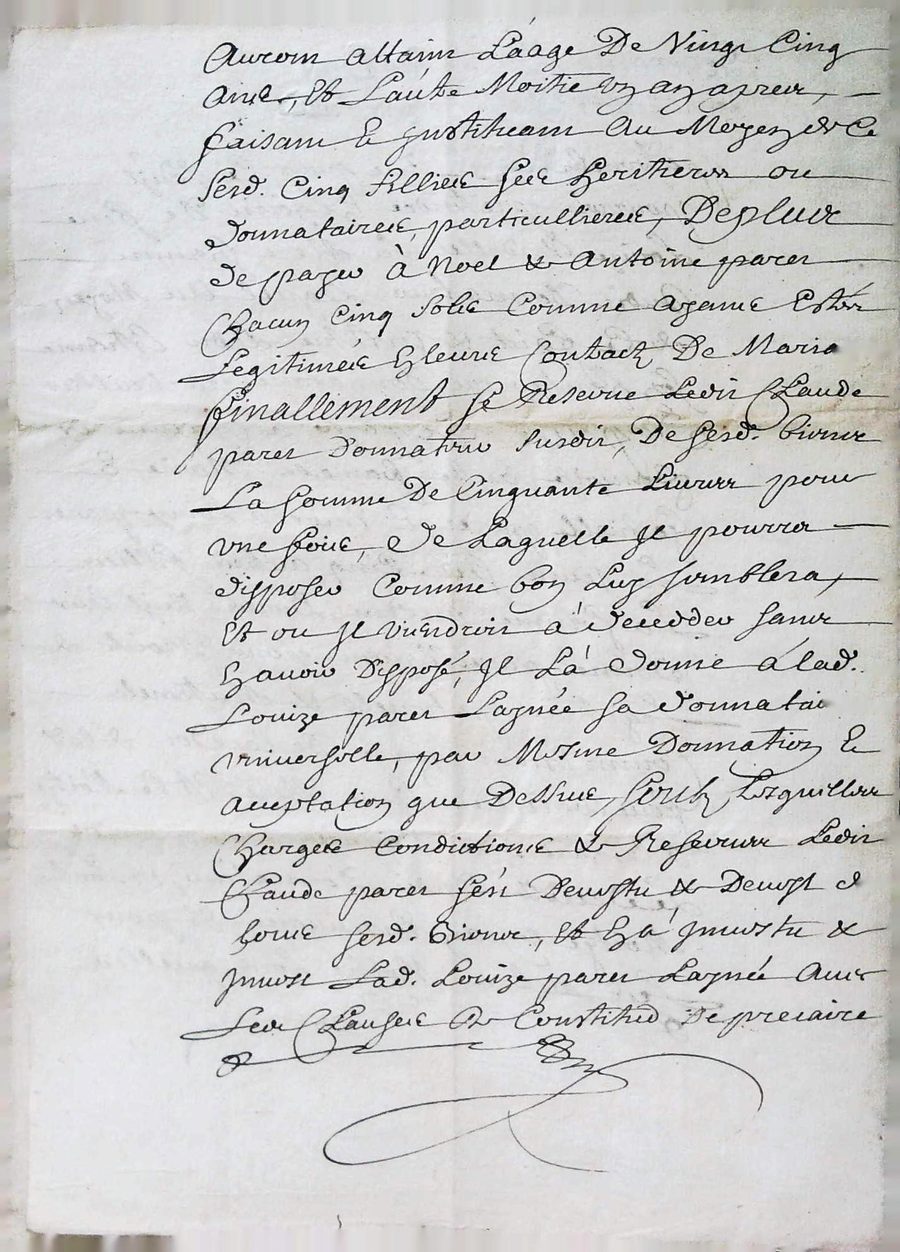 auront attaint L'áage De Vingt Cinq
ans, Et L'autre Moitié un an apres,
faisant & instituant Au Moyen de Ce
sesd. Cinq filliees ses heritieres ou
donnataires, particullieres, De plus
de payer à Noel & Antoine paret
Chacun Cinq sols Comme ayants Estés
Legitimées en leurs Contactz De Maria
finallement se Reserve Ledit Claude
paret Donnateur susdit, De sesd. biens
La somme De Cinquante Livres pour
une fois, De Laquelle Il pourra
disposer Comme bon Luy semblera,
Et ou Il viendroit à deceder sans
En avoir Disposé, Il Là donne à lad.
Louize paret L'aynée sa donnatai
universelle, par Mesme Donnation &
acceptation que Dessus, soub Lesquelles
Charges Conditions & Reserves Ledit
Claude paret s'est Devestu & Devest de
tous sesd. biens, Et En à Investu &
Invest Lad. Louize paret L'aynée Avec
Les Clauses de Constitud De precaire
&